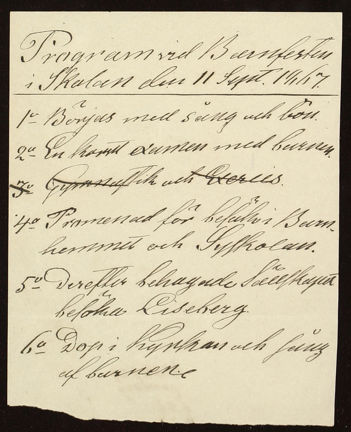 Program vid Barnfesten
i Skolan den 11 Sept. 1867.
1o Börjas med sång och bön.
2o En kort examen med barnen.
3o Gymnastik och Exercis.
4o Promenad för besök i Barn-
hemmet och Syskolan.
5o Derefter behagade Sällskapet
besöka Liseberg.
6o Dop i Kyrkan och sång
af barnen